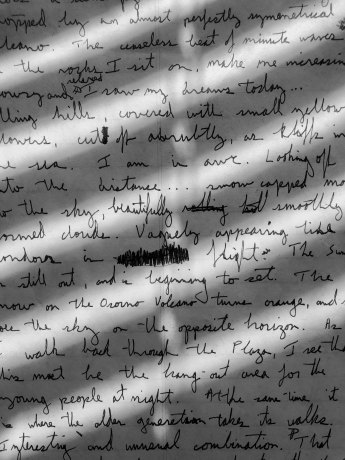 topped by an almost perfectly symmetrical
The ceaseless beat of minute waves
the rocks I sit on, make me increasin
relaxed
owsy and I saw my dreams today...
lling hills, covered with small yellow
lowers, cut off abruptly, as bluffs in
he sea. I am in awe. Looking off
to the distance... snow capped mo
to the sky, beautifully smoothly
formed clouds. Vaguely appearing like
condors in flight. The Sun
still out, and is beginning to set. The
now on the Osorno Volcano turns orange, and s
oes the sky on the opposite horizon. As
walk back through the Plaza, I see tha
his must be the hang-out area for the
young people at night. At the same time, it
is where the older generation takes its walks.
Interesting and unusual combination. That